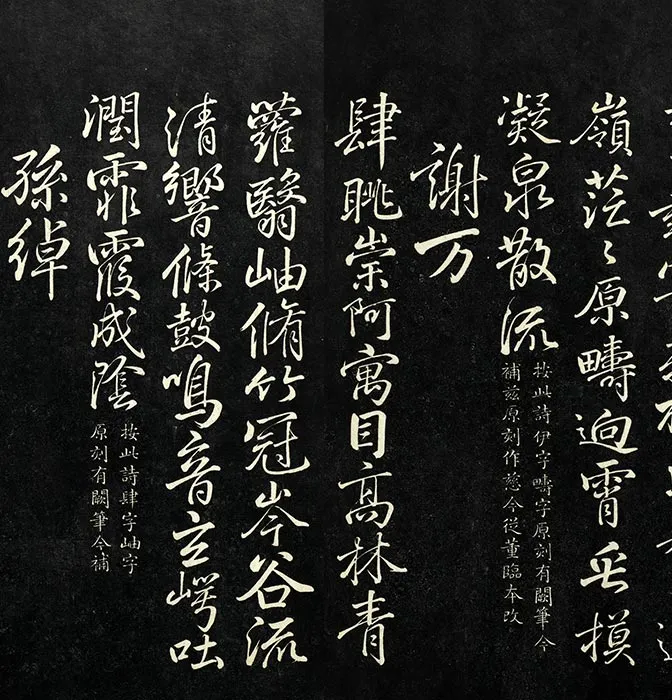 嶺茫〻原疇迥霄垂摸
凝泉散流
按此詩伊字疇字原刻有闕筆今
補茲原刻作慈今從董臨本改
謝万
肆眺崇阿寓目高林青
蘿翳岫脩竹冠岑谷流
清響條鼓鳴音玄崿吐
潤霏霞成陰
按此詩肆字岫字
原刻有闕筆今補
孫綽